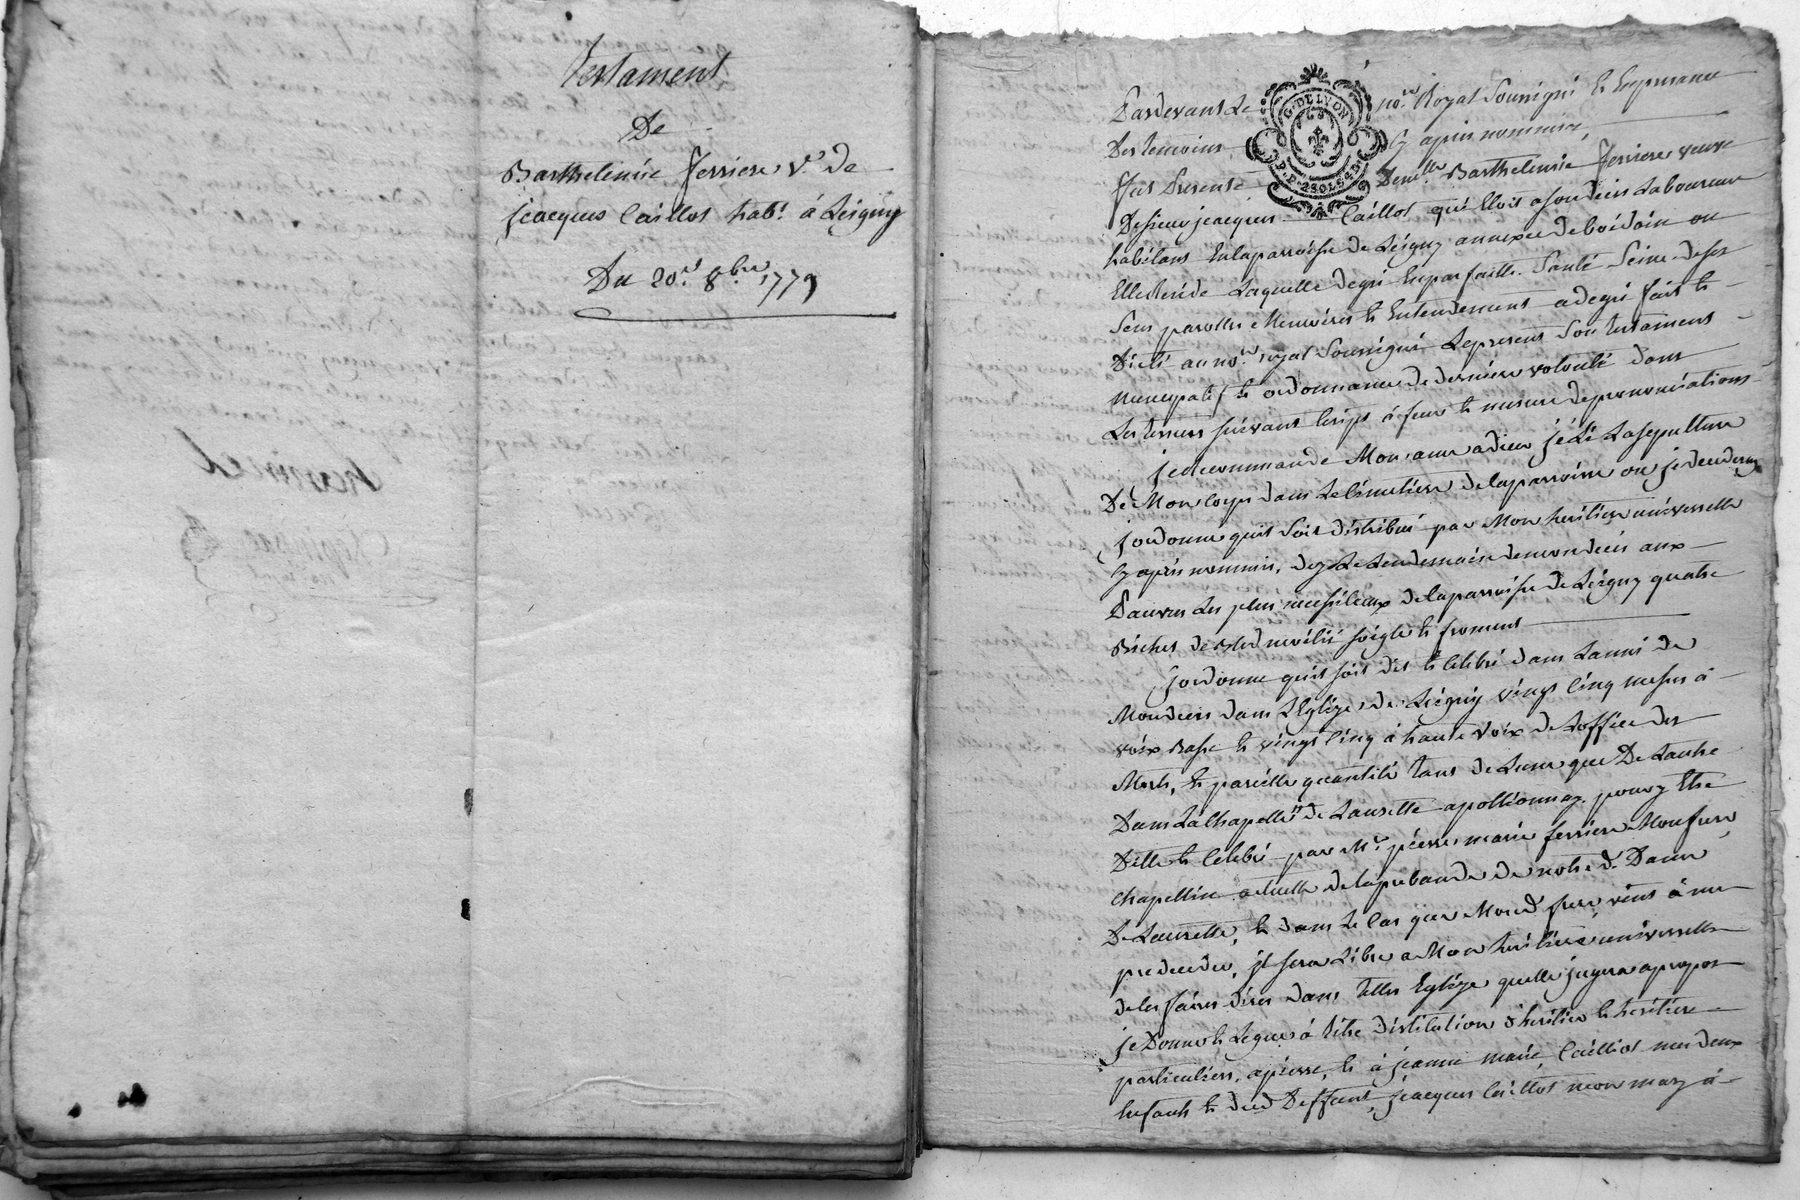 testament
De
Barthelemie ferriere v.e de
jeacques Caillot hab.t á Lésigny
Du 20.e 8.bre 1779
Pardevant Le no.re Royal Soussigné et En presance
Des temoins Cy apres nommées,
G. DE LYON
Fut Presente Dem.lle Barthelemie ferriere veuve
De sieur jeacques Caillot qui Etoit a son deces Laboureur
habitant En la parroisse de Lésigny annexe de boisdoin ou
Elle Reside Laquelle de gré En parfaitte Santé Seine de ses
Sens parolles Memoires et Entendement a de gré fait et
Dicté au no.re royal Soussigné Le present Son testament
Nuncupatif et ordonnance de derniere volonté dans
Les termes suivant Ecrips á feur et mesure de prononciations
je Recommande Mon ame a dieu je Elis La sepulture
De Mon Corps dans Le Cimetiere de la parroisse ou je decederay
j'ordonne quil Soit distribué par Mon heritiere universelle
Cy apres nommée, des Le Lendemain de mon deces aux
Pauvres Les plus necessiteux de la parroisse de Lésigny quatre
Bichets de Bled meslé seigle et froment
j'ordonne quil soit dit et Celebré dans Lannée de
Mon deces dans L'Eglize de Lésigny vingt Cinq messes á
voix Basse et vingt Cinq á haute voix de Loffice des
Morts, et pareille quantité tant de Lune que De Lautre
Dans La Chapelle de Laurette a pollionnay pour y Etre
Ditte et Celebré par M.r pierre marie ferriere Mon frere
Chapellin actuelle de la prebande de notre d.e Dame
De Laurette, et dans Le Cas que Mond frere vint á me
predeceder, jl sera Libre a Mon heritiere universelle
de les faires dires dans telles Eglize quelle jugera apropos
je Donne et Legue á titre distitution d'heritier et heritiere
particuliers, a pierre, et á jeanne marie Cailliot mes deux
Enfants et dud Deffunt jeacques Caillot mon mary á